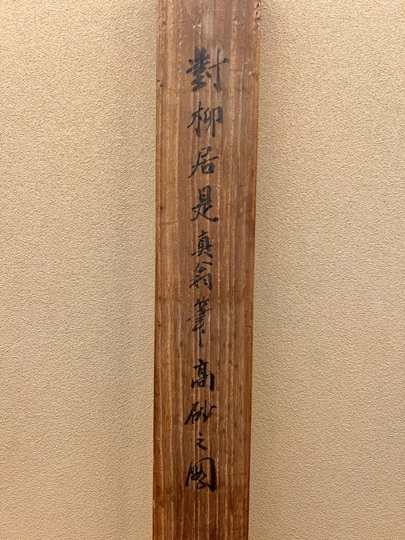 對柳居是真翁筆高砂之図